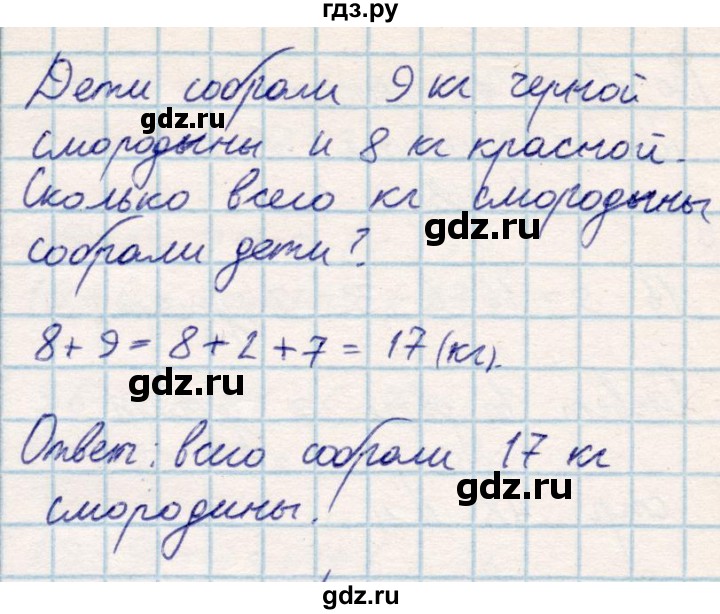 гдз.ру
Дети собрали 9 кг черной
gdz.ru
смородыны и 8 кг красной.
Сколько всего кг смородыны
gdz.ru
собрали дети?
8+9=8+2+7=17(кг).
gdz.ru
Ответ: всего собрали 17 кг
gdz.ru
смородины.
gdz.ru